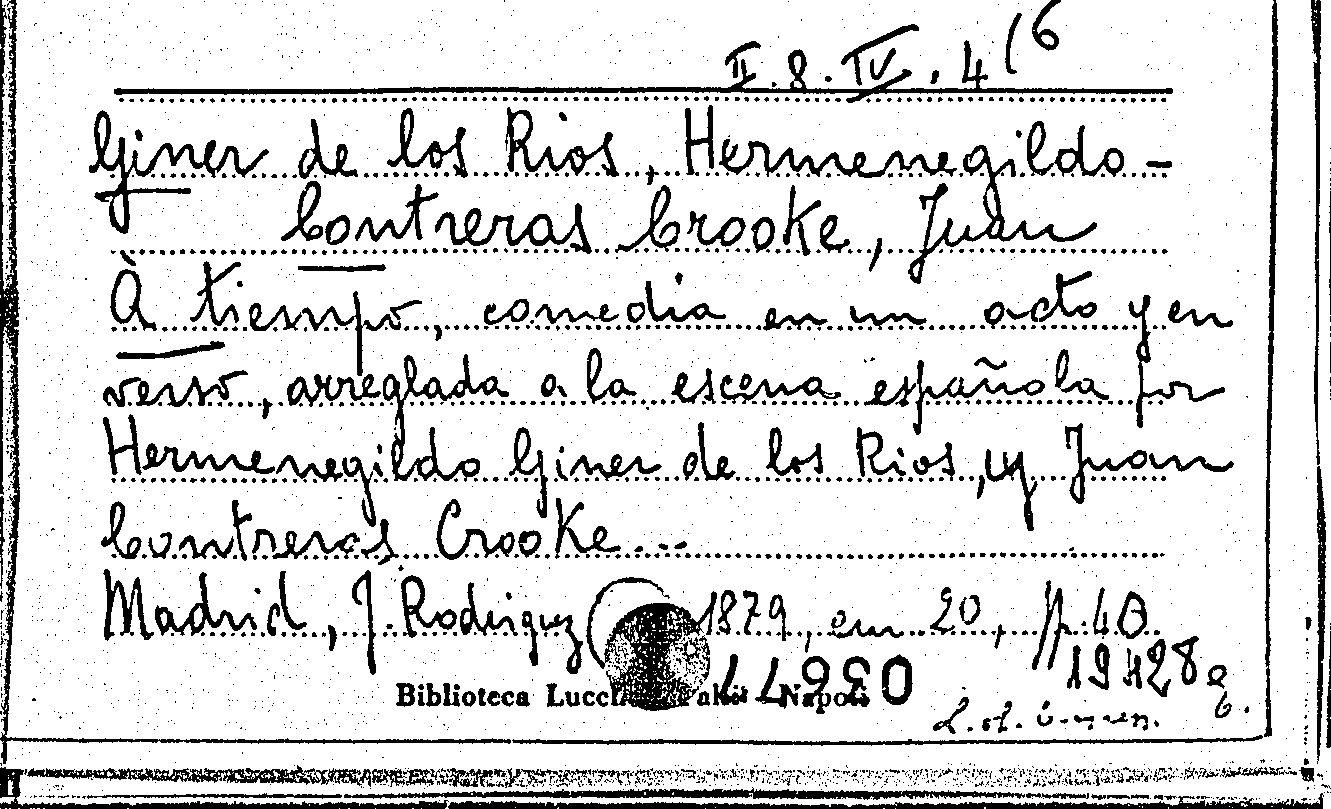 II.8.IV.4(6
Giner de los Rios, Hermenegildo -
Contreras Crooke, Juan
À tiempo, comedia en un acto y en
verso, arreglada a la escena española por
Hermenegildo Giner de los Rios, y Juan
Contreras Crooke...
Madrid, J. Rodriguez 1879, em 20, pp. 40
19428
Biblioteca Napoli